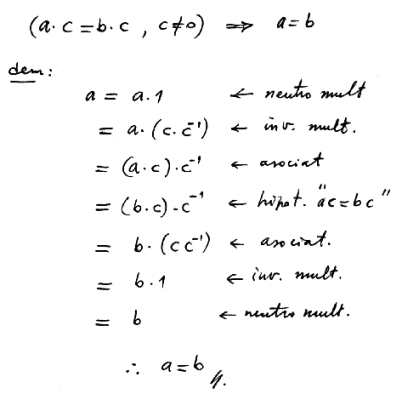 (a·c = b·c , c≠0) ⟹ a=b
dem:
a = a·1 ← neutro mult
= a·(c·c⁻¹) ← inv. mult.
= (a·c)·c⁻¹ ← asociat
= (b·c)·c⁻¹ ← hipot. "ac=bc"
= b·(cc⁻¹) ← asociat.
= b·1 ← inv. mult.
= b ← neutro mult.
∴ a=b